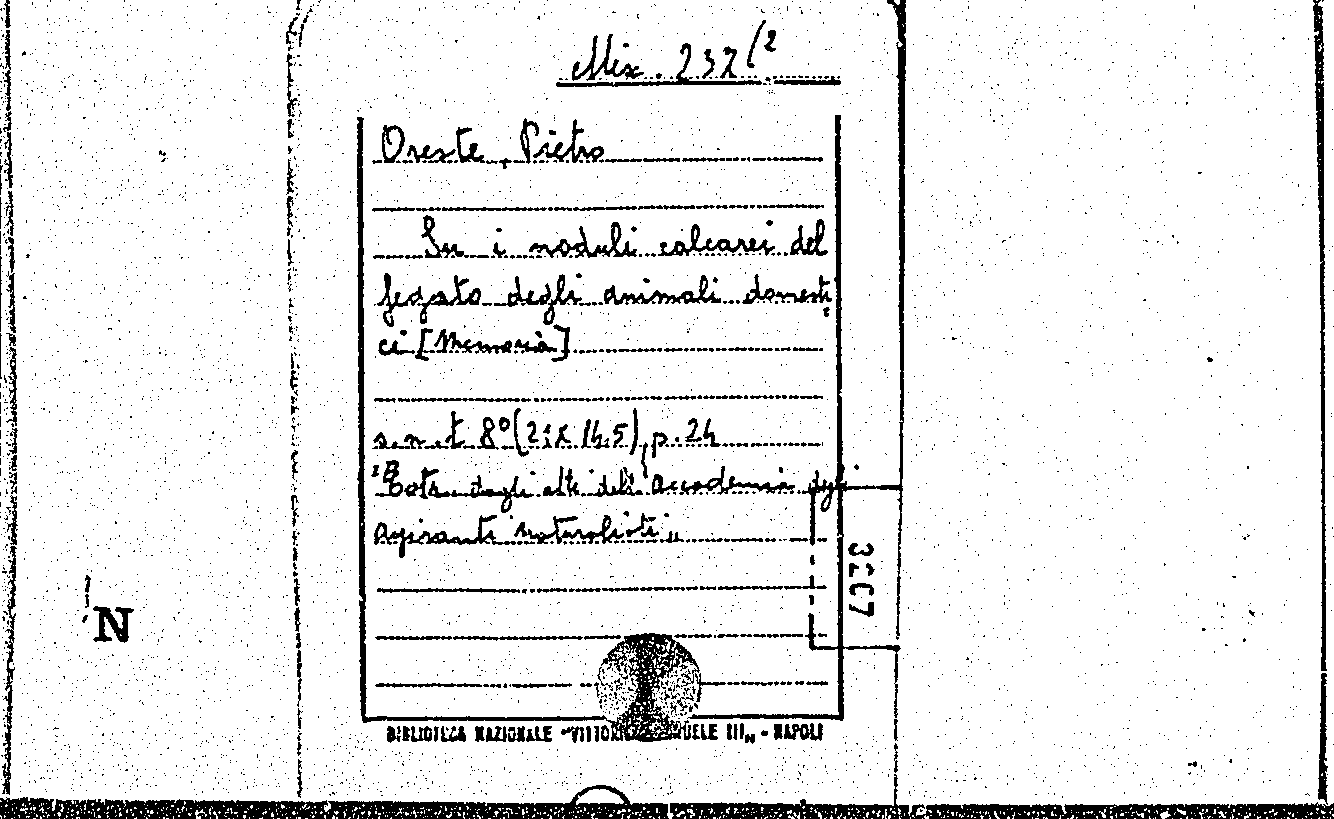 Mix. 237(2
Oreste, Pietro
Su i noduli calcarei del
fegato degli animali domesti=
ci [Memoria]
s.n.t 8°(21x14.5), p. 24
"Estr. dagli atti dell'Accademia degli
aspiranti naturalisti"
3207
N
BIBLIOTECA NAZIONALE "VITTORIO EMANUELE III" - NAPOLI